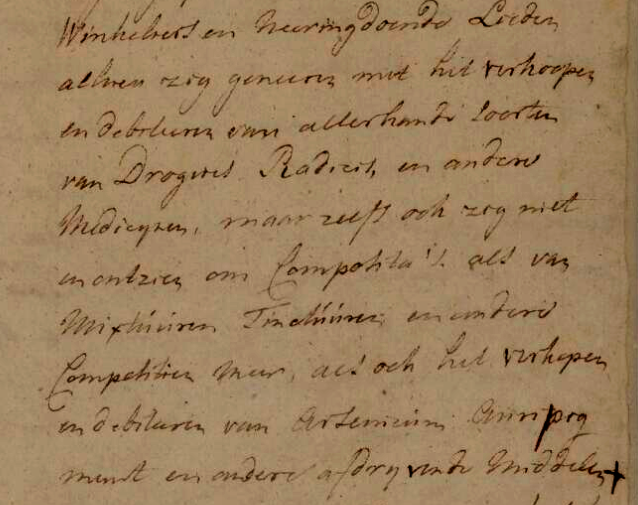 Winkeliers en Neeringdoende Lieden
alleen zig geneeren met het verkoopen
en debiteeren van allerhande soorten
van Drogeries Radices, en andere
Medicynen, maar zelfs ook zig niet
en ontzien om Composita's als van
Mixtuuren Tinctuuren en andere
Compositien meer, als ook het verkopen
en debiteeren van Arsenicum Auripig
ment en andere afdryvende Middelen